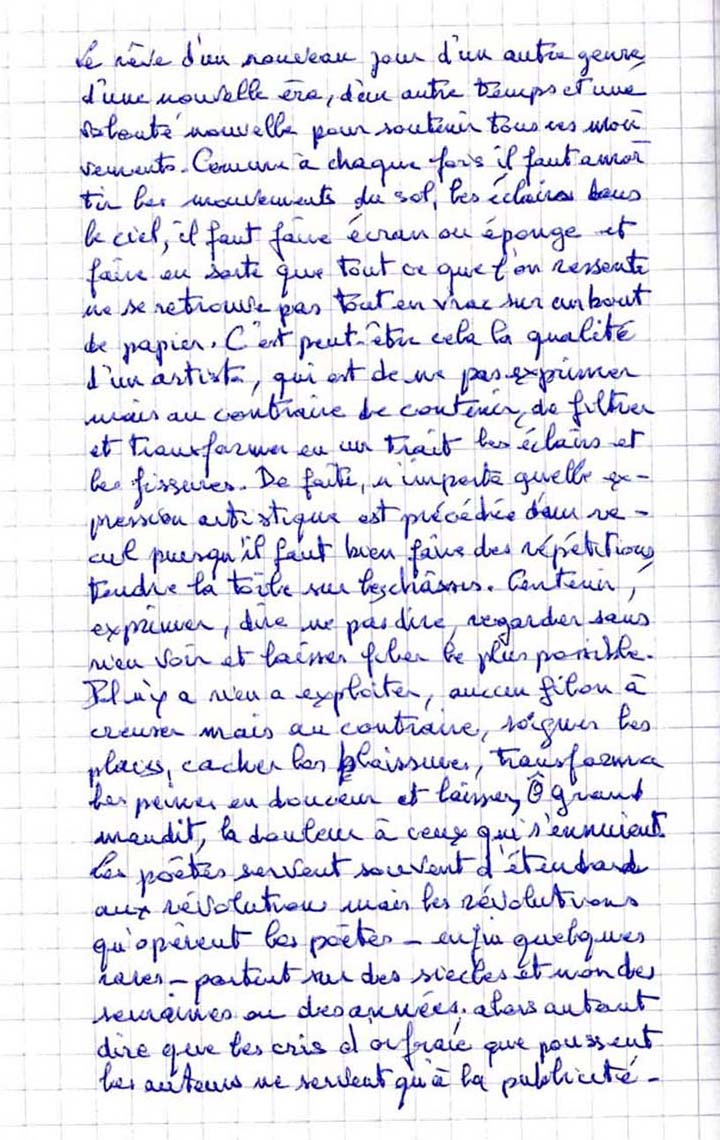 Le rêve d'un nouveau jour d'un autre genre,
d'une nouvelle ère, d'un autre temps et une
volonté nouvelle pour soutenir tous ces mou
vements. Comme à chaque fois il faut amor
tir les mouvements du sol, les éclairs dans
le ciel, il faut faire écran ou éponge et
faire en sorte que tout ce que l'on ressente
ne se retrouve pas tout en vrac sur un bout
de papier. C'est peut-être cela la qualité
d'un artiste, qui est de ne pas exprimer
mais au contraire de contenir, de filtrer
et transformer en un trait les éclairs et
les fissures. De faite, n'importe quelle ex-
pression artistique est précédée d'un re-
cul puisqu'il faut bien faire des répétitions,
tendre la toile sur les châssis. Contenir,
exprimer, dire ne pas dire, regarder sans
rien voir et laisser filer le plus possible.
Il n'y a rien a exploiter, aucun filon à
creuser mais au contraire, soigner les
plaies, cacher les blessures, transformer
les peines en douceur et laisser, Ô grand
maudit, la douleur à ceux qui s'ennuient.
Les poètes servent souvent d'étendard
aux révolutions mais les révolutions
qu'opèrent les poètes - enfin quelques
rares - portent sur des siècles et non des
semaines ou des années. alors autant
dire que les cris d'orfraie que poussent
les auteurs ne servent qu'à la publicité -